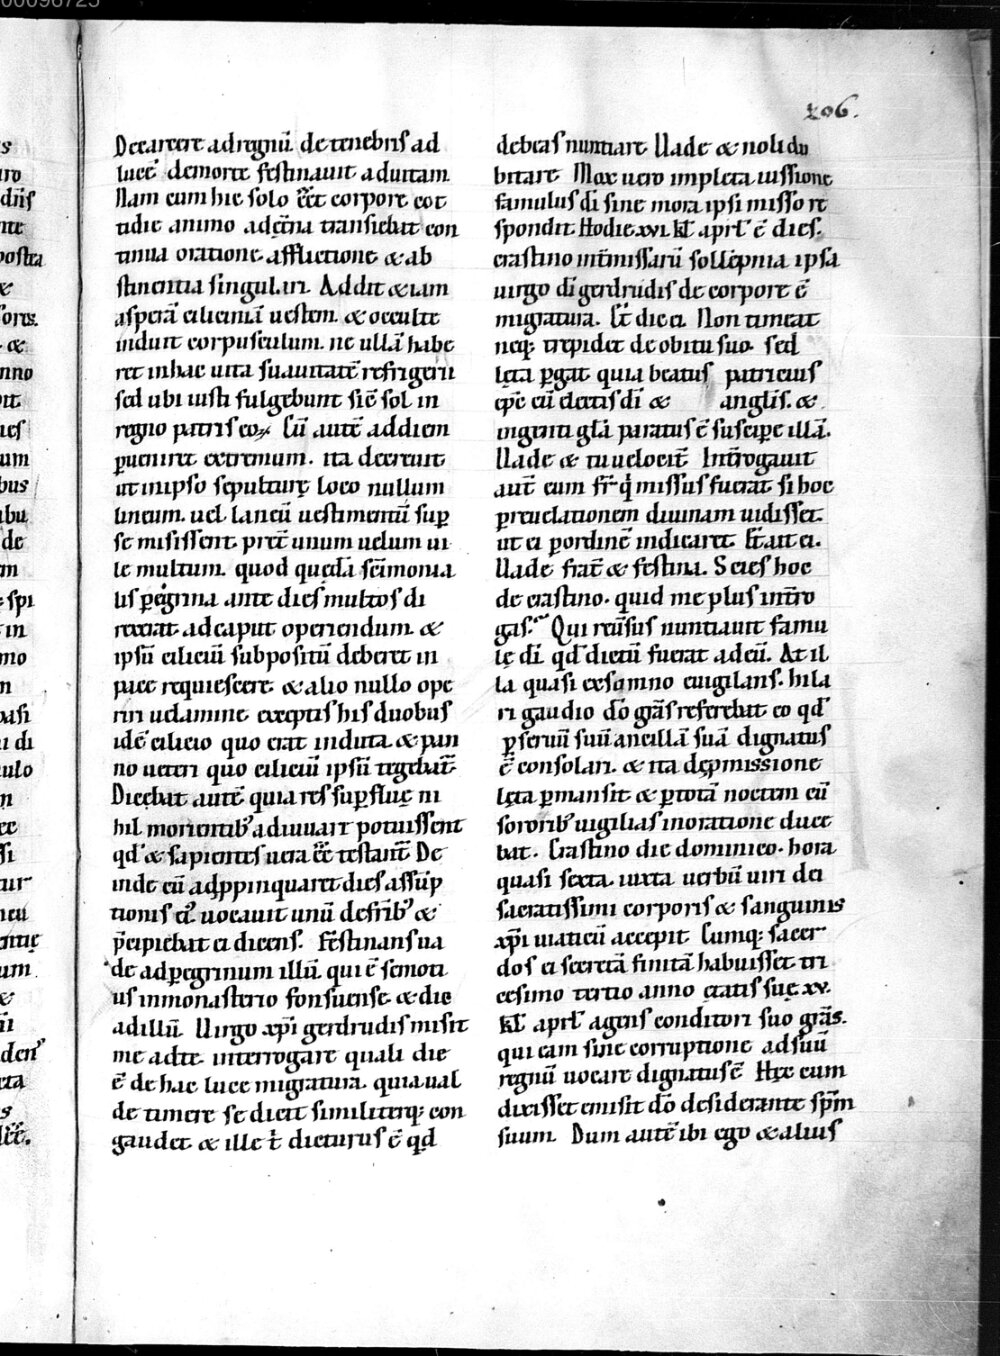 206.
De carcere ad regnū de tenebris ad
lucē de morte festinauit ad uitam
Nam cum hic solo eēt corpore cot
tidie animo ad etn̄a transiebat con
tinua oratione afflictione & ab
stinentia singulari. Addit & iam
asperā ciliciniā uestem. & occulte
induit corpusculum. ne ullā habe
ret in hac uita suauitatē refrigerii
sed ubi iusti fulgebunt sic̄ sol in
regno patris eoꝝ Cū autē ad diem
ꝑueniret extremum. ita decreuit
ut in ipso sepulturę loco nullum
lineum. uel laneū uestimentū sup̄
se misissent. pret̄ unum uelum ui
le multum. quod quędā sc̄imonia
lis ꝑegrina ante dies multos di
rexerat ad caput operiendum. &
ipsū ciliciū subpositū deberet in
pace requiescere. & alio nullo ope
riri uelamine exceptis his duobus
idē cilicio quo erat induta & pan
no ueteri quo ciliciū ipsū tegebat̄
Dicebat autē quia res sup̄fluę ni
hil morientib; adiuuare potuissent
qd̄ & sapientes uera eē testant̄ De
inde cū adp̱pinquaret dies assūp
tionis ei᷒ uocauit unū de fr̄ib; &
p̄cipiebat ei dicens. Festinans ua
de ad ꝑegrinum illū. qui ē semoti
us in monasterio fonsuense & dic
ad illū Uirgo xp̄i gerdrudis misit
me ad te interrogare quali die
ē de hac luce migratura. quia ual
de timere se dicit similiterq; con
gaudet & ille t̄ dicturus ē qd̄
debeas nuntiare Uade & noli du
bitare Mox uero impleta iussione
famulus dī sine mora ipsi misso re
spondit Hodie xvi kƚ apriƚ ē dies.
crastino int̄missarū sollēpnia ipsa
uirgo dī gerdrudis de corpore ē
migratura. Et̄ dic ei Non timeat
neq; trepidet de obitu suo. sed
lęta ꝑgat quia beatus patricius
ep̄c cū electis dī & anglis. &
ingenti gƚā paratus ē suscipere illā.
Uade & tu uelocit̄ Int̄rogauit
aut̄ eum fr̄ q̄ missus fuerat si hoc
ꝑ reuelationem diuinam uidisset.
ut ei ꝑ ordinē indicaret Et̄ ait ei.
Uade frat̄ & festina. Scies hoc
de crastino. quid me plus int̄ro
gas. Qui reūsus nuntiauit famu
lę dī qd̄ dictū fuerat ad eū. At il
la quasi ex somno euigilans. hila
ri gaudio dō grās referebat eo qd̄
ꝑ seruū suū ancillā suā dignatus
ē consolari. & ita dę p̱missione
lęta ꝑmansit & ꝑ totā noctem cū
sororib; uigilias in oratione duce
bat. Crastino die dominico. hora
quasi sexta iuxta uerbū uiri dei
sacratissimi corporis & sanguinis
xp̄i uiaticū accepit Cumq; sacer
dos ei secretā finitā habuisset tri
cesimo tertio anno ętatis suę xv.
kƚ apriƚ agens conditori suo grās.
qui eam sine corruptione ad suū
regnū uocare dignatus ē Hęc cum
dixisset emisit dō desiderante sp̄m
suum. Dum autē ibi ego & alius